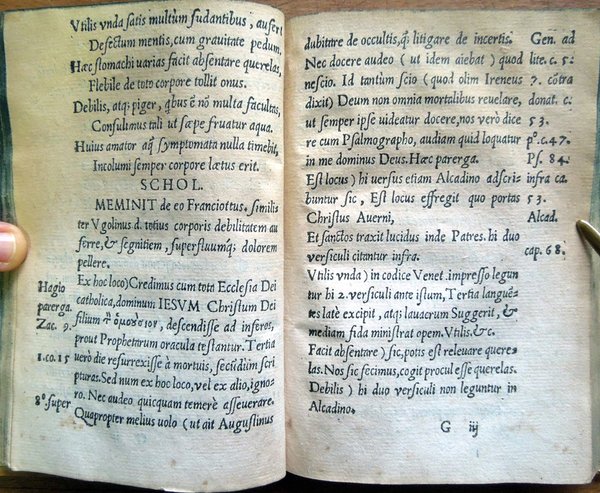 Vtilis vnda satis multùm sudantibus, aufert
Defectum mentis, cum grauitate pedum.
Hæc stomachi uarias facit absentare querelas,
Flebile de toto corpore tollit onus.
Debilis, atq; piger, qbus ẽ nõ multa facultas,
Consulimus tali ut sæpe fruatur aqua.
Huius amator aq̃ symptomata nulla timebit,
Incolumi semper corpore lætus erit.
SCHOL.
MEMINIT de eo Franciottus. similiter
Vgolinus d. totius corporis debilitatem au
ferre, & segnitiem, superfluumq; dolorem
pellere.
Ex hoc loco) Credimus cum tota Ecclesia Dei
catholica, dominum IESVM Christum Dei
filium ὁμούσιον, descendisse ad inferos,
prout Prophetarum oracula testantur. Tertia
uerò die resurrexisse à mortuis, secũdũm scri
pturas. Sed num ex hoc loco, vel ex alio, igno-
ro. Nec audeo quicquam temerè asseuerare.
Quapropter melius uolo (ut ait Augustinus
Hagio
parerga.
Zac. 9.
1. co. 15
8°. super
dubitare de occultis, q̃; litigare de incertis.
Nec docere audeo (ut idem aiebat) quod
nescio. Id tantùm scio (quod olim Ireneus
dixit) Deum non omnia mortalibus reuelare,
ut semper ipse uideatur docere, nos verò dice
re cum Psalmographo, audiam quid loquatur
in me dominus Deus. Hæc parerga.
Est locus) hi uersus etiam Alcadino adscri
buntur sic, Est locus effregit quo portas
Christus Auerni,
Et sanctos traxit lucidus inde Patres. hi duo
versiculi citantur infra.
Vtilis vnda) in codice Venet. impresso legun
tur hi 2. versiculi ante istum, Tertia languẽ-
tes latè excipit, atq; lauacrum Suggerit, &
mediam fida ministrat opem. Vtilis. &c.
Facit absentare) sic, potis est releuare quere
las. Nos sic fecimus, cogit procul esse querelas.
Debilis) hi duo versiculi non leguntur in
Alcadino.
Gen. ad
lite. c. 5.
7. cõtra
donat. c.
53.
p°. c. 47.
Ps. 84.
infra ca.
53.
Alcad.
cap. 68.
G iij